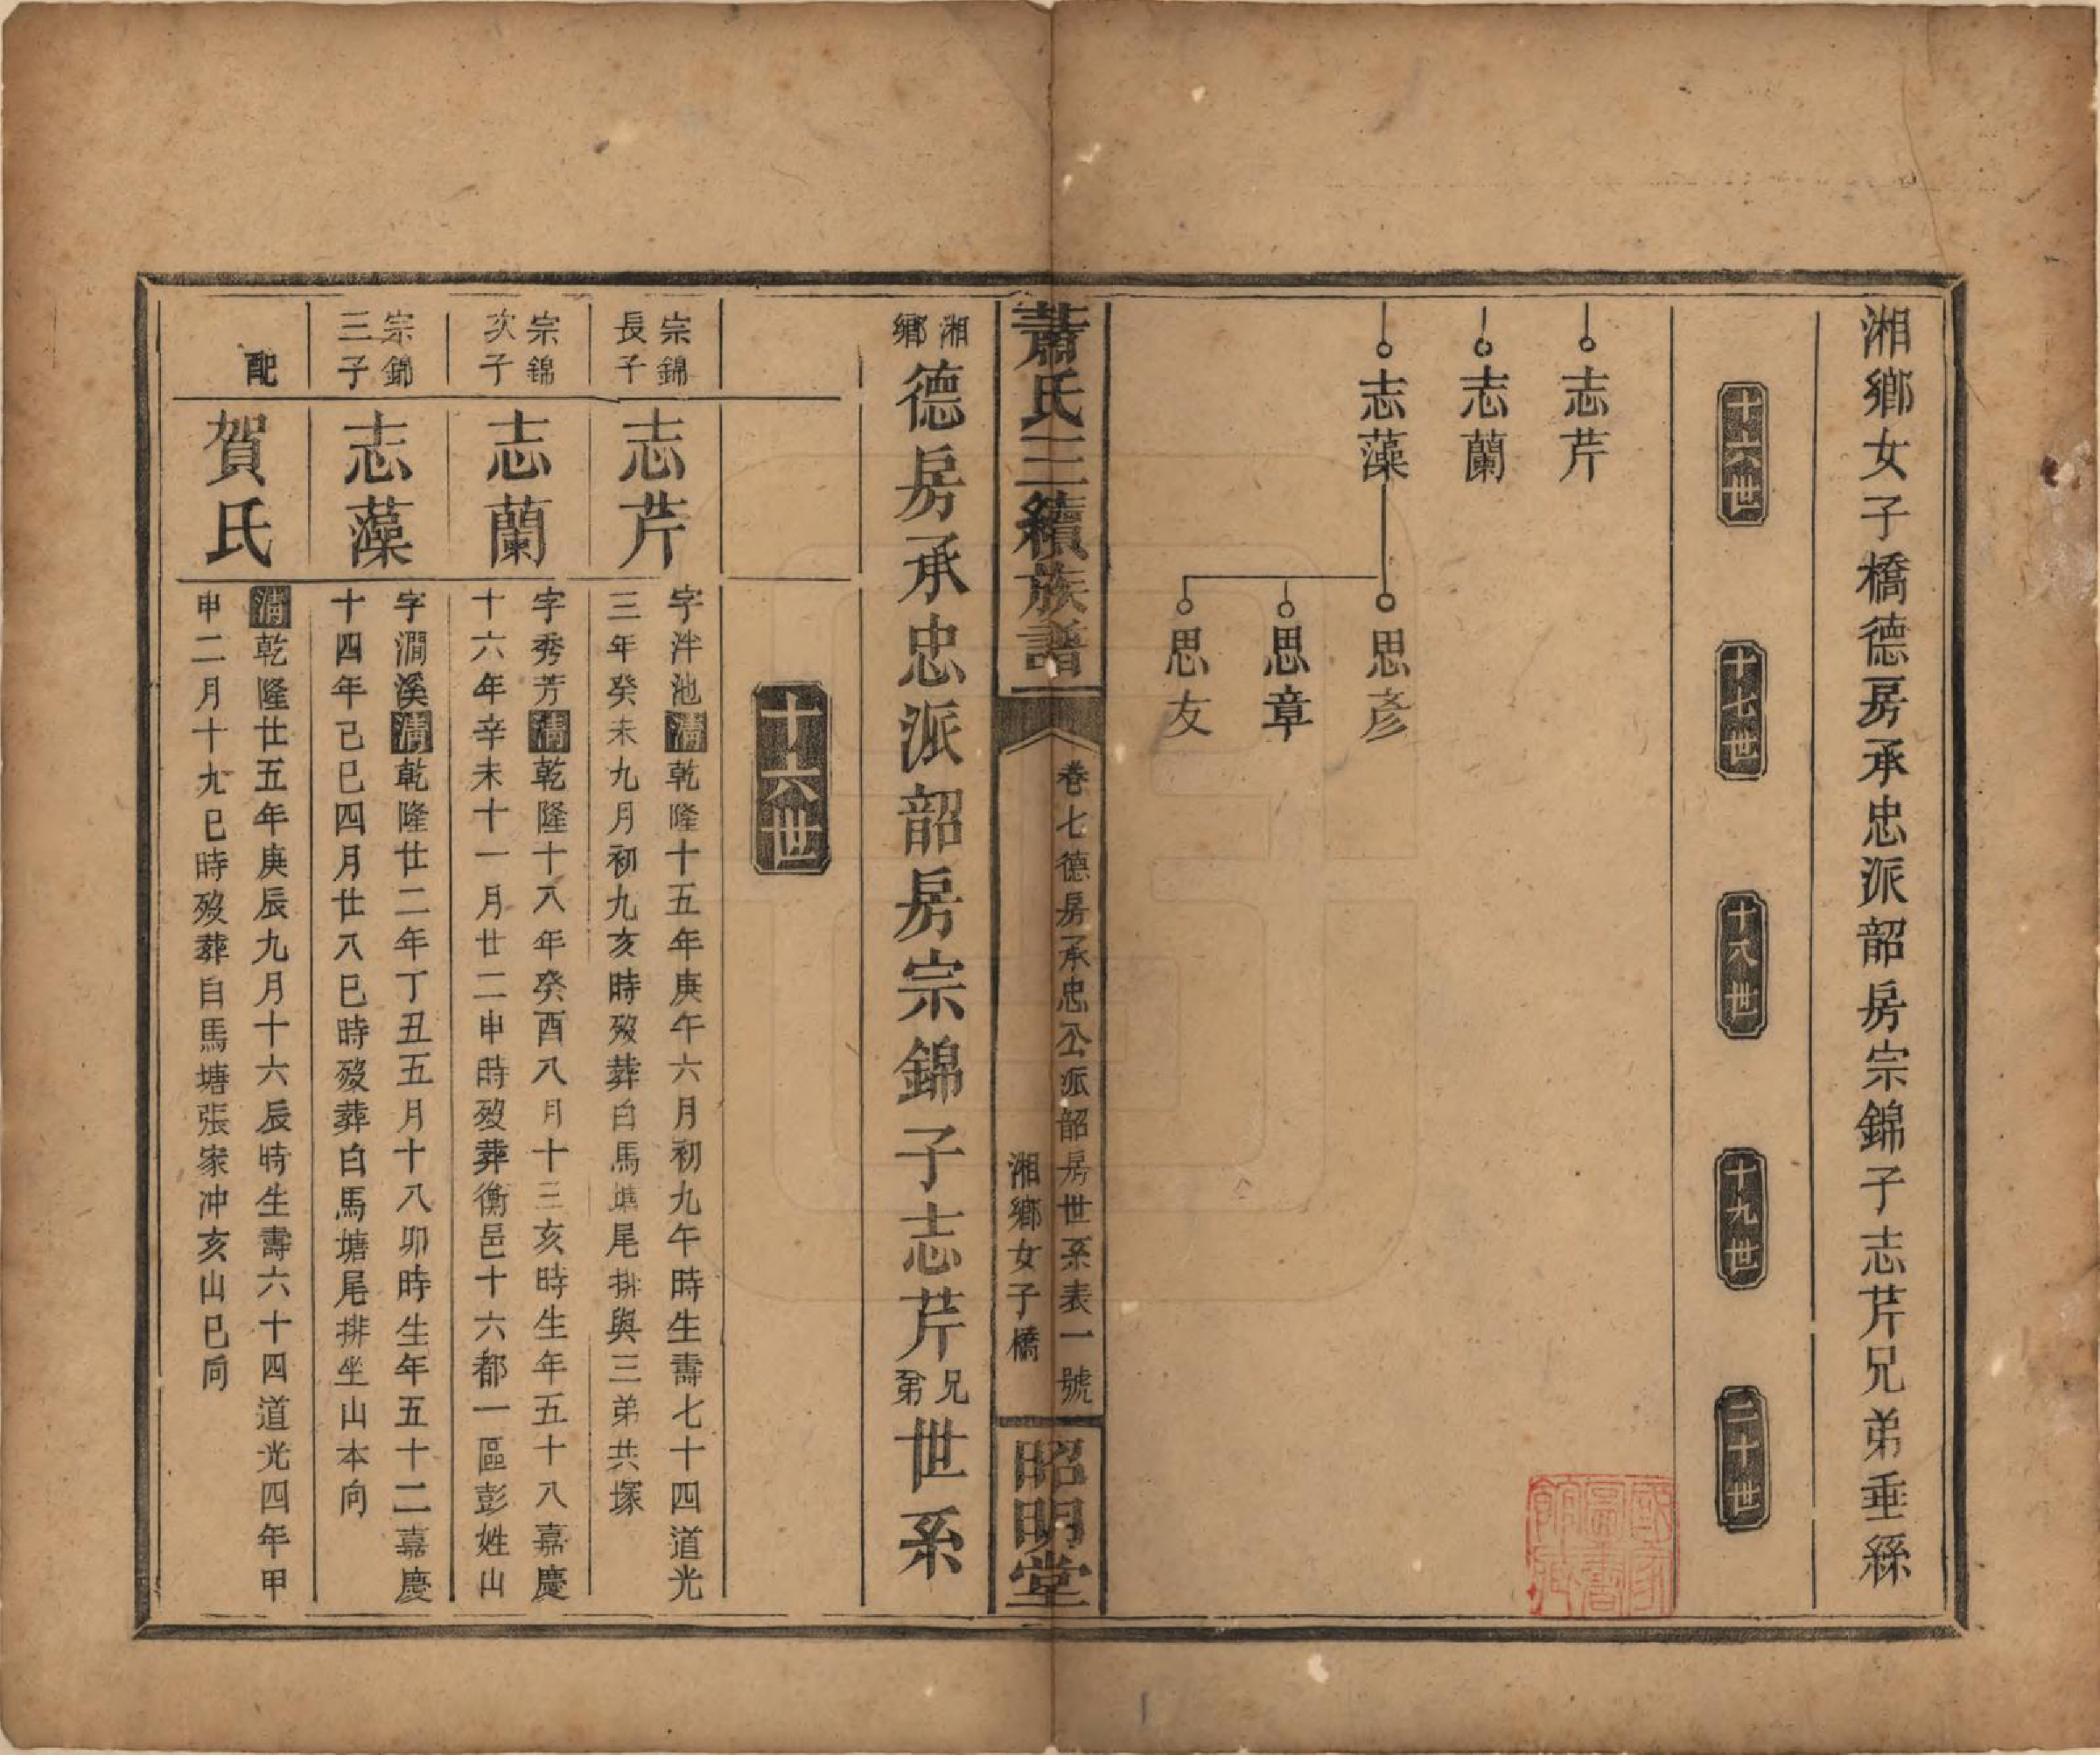 湘鄉女子橋德房承忠派韶房宗錦子志芹兄弟垂絲
十六世
十七世
十八世
十九世
二十世
志芹
志蘭
志藻
思彥
思章
思友
蕭氏三續族譜
卷七德房承忠公派韶房世系表一號
湘鄉女子橋
昭明堂
湘鄉德房承忠派韶房宗錦子志芹兄弟世系
十六世
宗錦長子
志芹
字泮池清乾隆十五年庚午六月初九午時生壽七十四道光
三年癸未九月初九亥時歿葬白馬塘尾排與三弟共塚
宗錦次子
志蘭
字秀芳清乾隆十八年癸酉八月十三亥時生年五十八嘉慶
十六年辛未十一月廿二申時歿葬衡邑十六都一區彭姓山
宗錦三子
志藻
字澗溪清乾隆廿二年丁丑五月十八卯時生年五十二嘉慶
十四年己巳四月廿八巳時歿葬白馬塘尾排坐山本向
配
賀氏
清乾隆廿五年庚辰九月十六辰時生壽六十四道光四年甲
申二月十九巳時歿葬白馬塘張家冲亥山巳向
國家圖書館藏